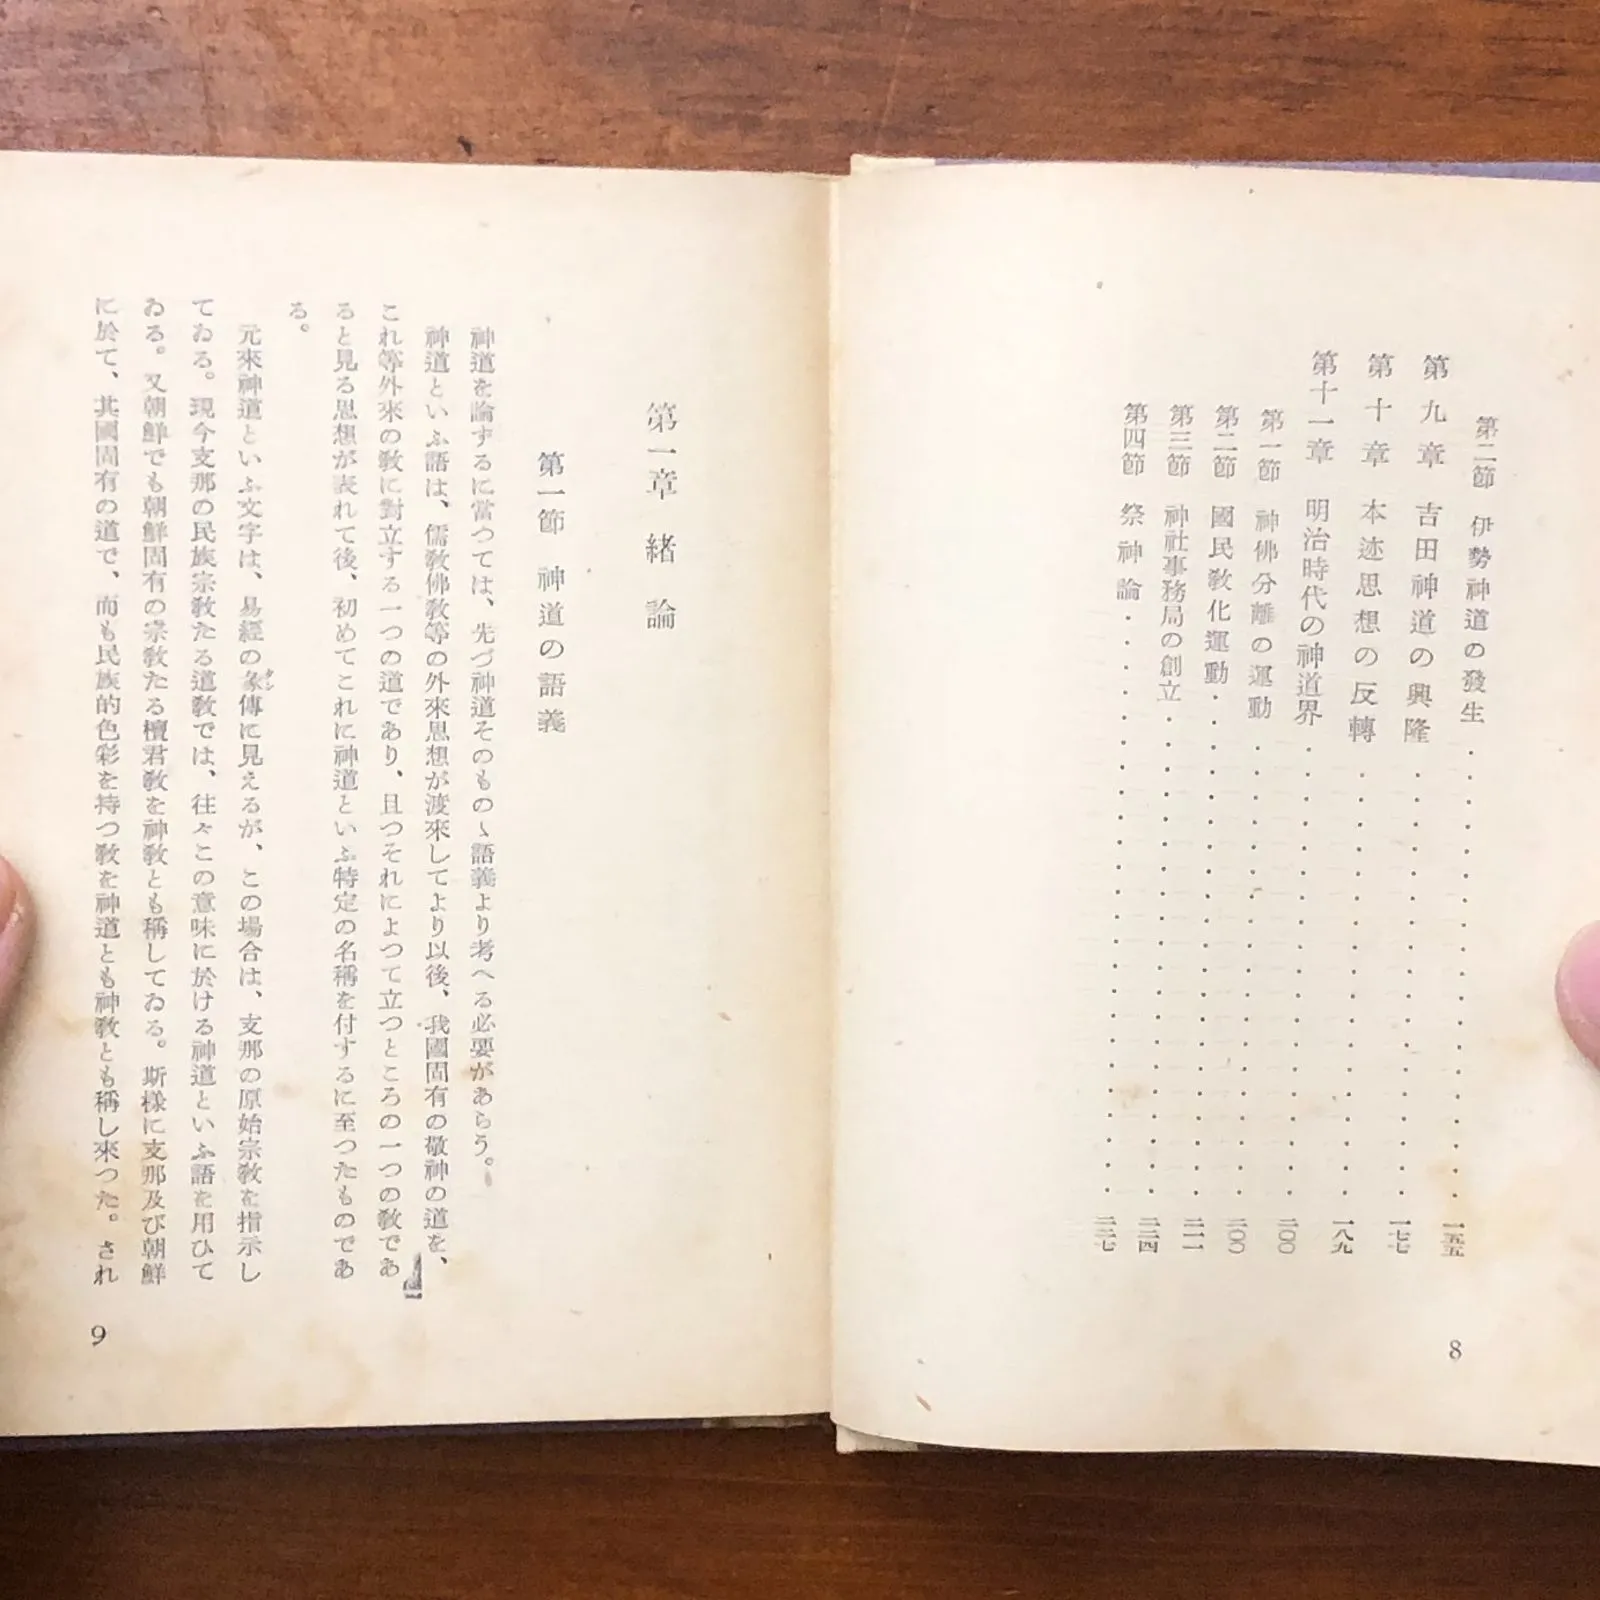 第二節 伊勢神道の發生・・・・・・・・・・・・・・・・・・一五五
第九章 吉田神道の興隆・・・・・・・・・・・・・・・・・・一七七
第十章 本迹思想の反轉・・・・・・・・・・・・・・・・・・一八九
第十一章 明治時代の神道界・・・・・・・・・・・・・・・・・・二〇〇
第一節 神佛分離の運動・・・・・・・・・・・・・・・・・・二〇〇
第二節 國民敎化運動・・・・・・・・・・・・・・・・・・・・二一一
第三節 神社事務局の創立・・・・・・・・・・・・・・・・・・・二二四
第四節 祭神論・・・・・・・・・・・・・・・・・・・・・・・二三七
8
第一章 緒論
第一節 神道の語義
神道を論ずるに當つては、先づ神道そのものゝ語義より考へる必要があらう。
神道といふ語は、儒敎佛敎等の外來思想が渡來してより以後、我國固有の敬神の道を、
これ等外來の敎に對立する一つの道であり、且つそれによつて立つところの一つの敎であ
ると見る思想が表れて後、初めてこれに神道といふ特定の名稱を付するに至つたものであ
る。
元來神道といふ文字は、易經の彖傳に見えるが、この場合は、支那の原始宗敎を指示し
タン
てゐる。現今支那の民族宗敎たる道敎では、往々この意味に於ける神道といふ語を用ひて
ゐる。又朝鮮でも朝鮮固有の宗敎たる檀君敎を神敎とも稱してゐる。斯樣に支那及び朝鮮
に於て、其國固有の道で、而も民族的色彩を持つ敎を神道とも神敎とも稱し來つた。され
9